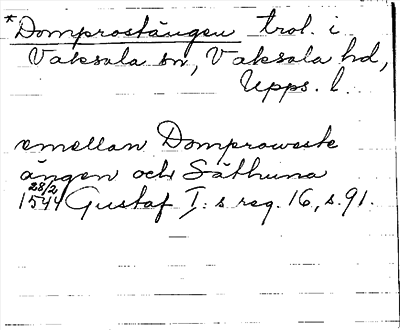 *Domprostängen trol. i
Vaksala sn, Vaksala hd,
Upps. l.
emellan Domproweste
ängen och Säthuna
28/2
1544 Gustaf I:s reg. 16, s. 91.